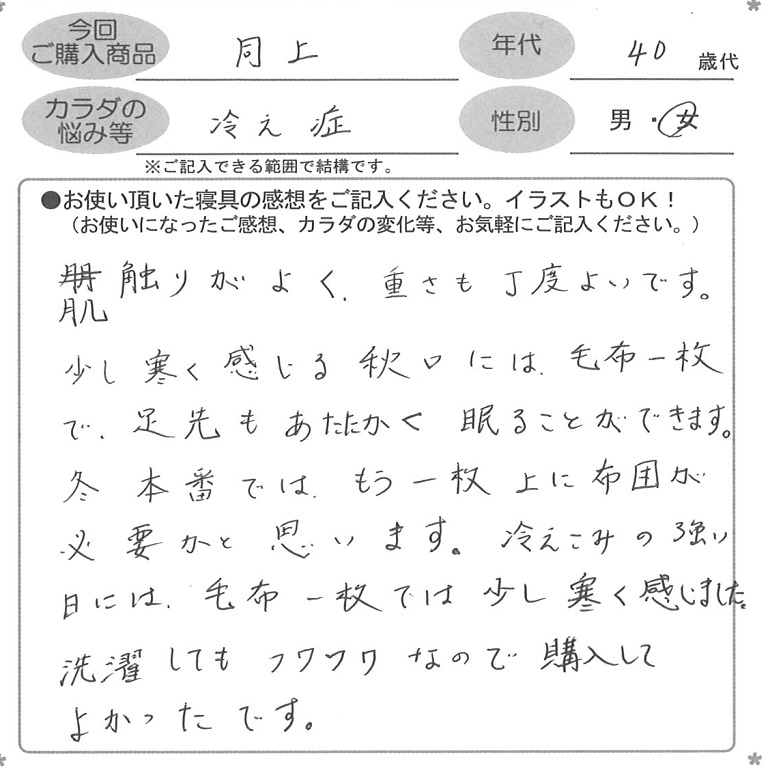 今回
ご購入商品
同上
年代
40 歳代
カラダの
悩み等
冷え症
性別
男・女
※ご記入できる範囲で結構です。
●お使い頂いた寝具の感想をご記入ください。イラストもOK！
（お使いになったご感想、カラダの変化等、お気軽にご記入ください。）
触りがよく、重さも丁度よいです。
肌
少し寒く感じる秋口には、毛布一枚
で、足先もあたたかく眠ることができます。
冬本番では、もう一枚上に布団が
必要かと思います。冷えこみの強い
日には、毛布一枚では少し寒く感じました。
洗濯してもフワフワなので購入して
よかったです。